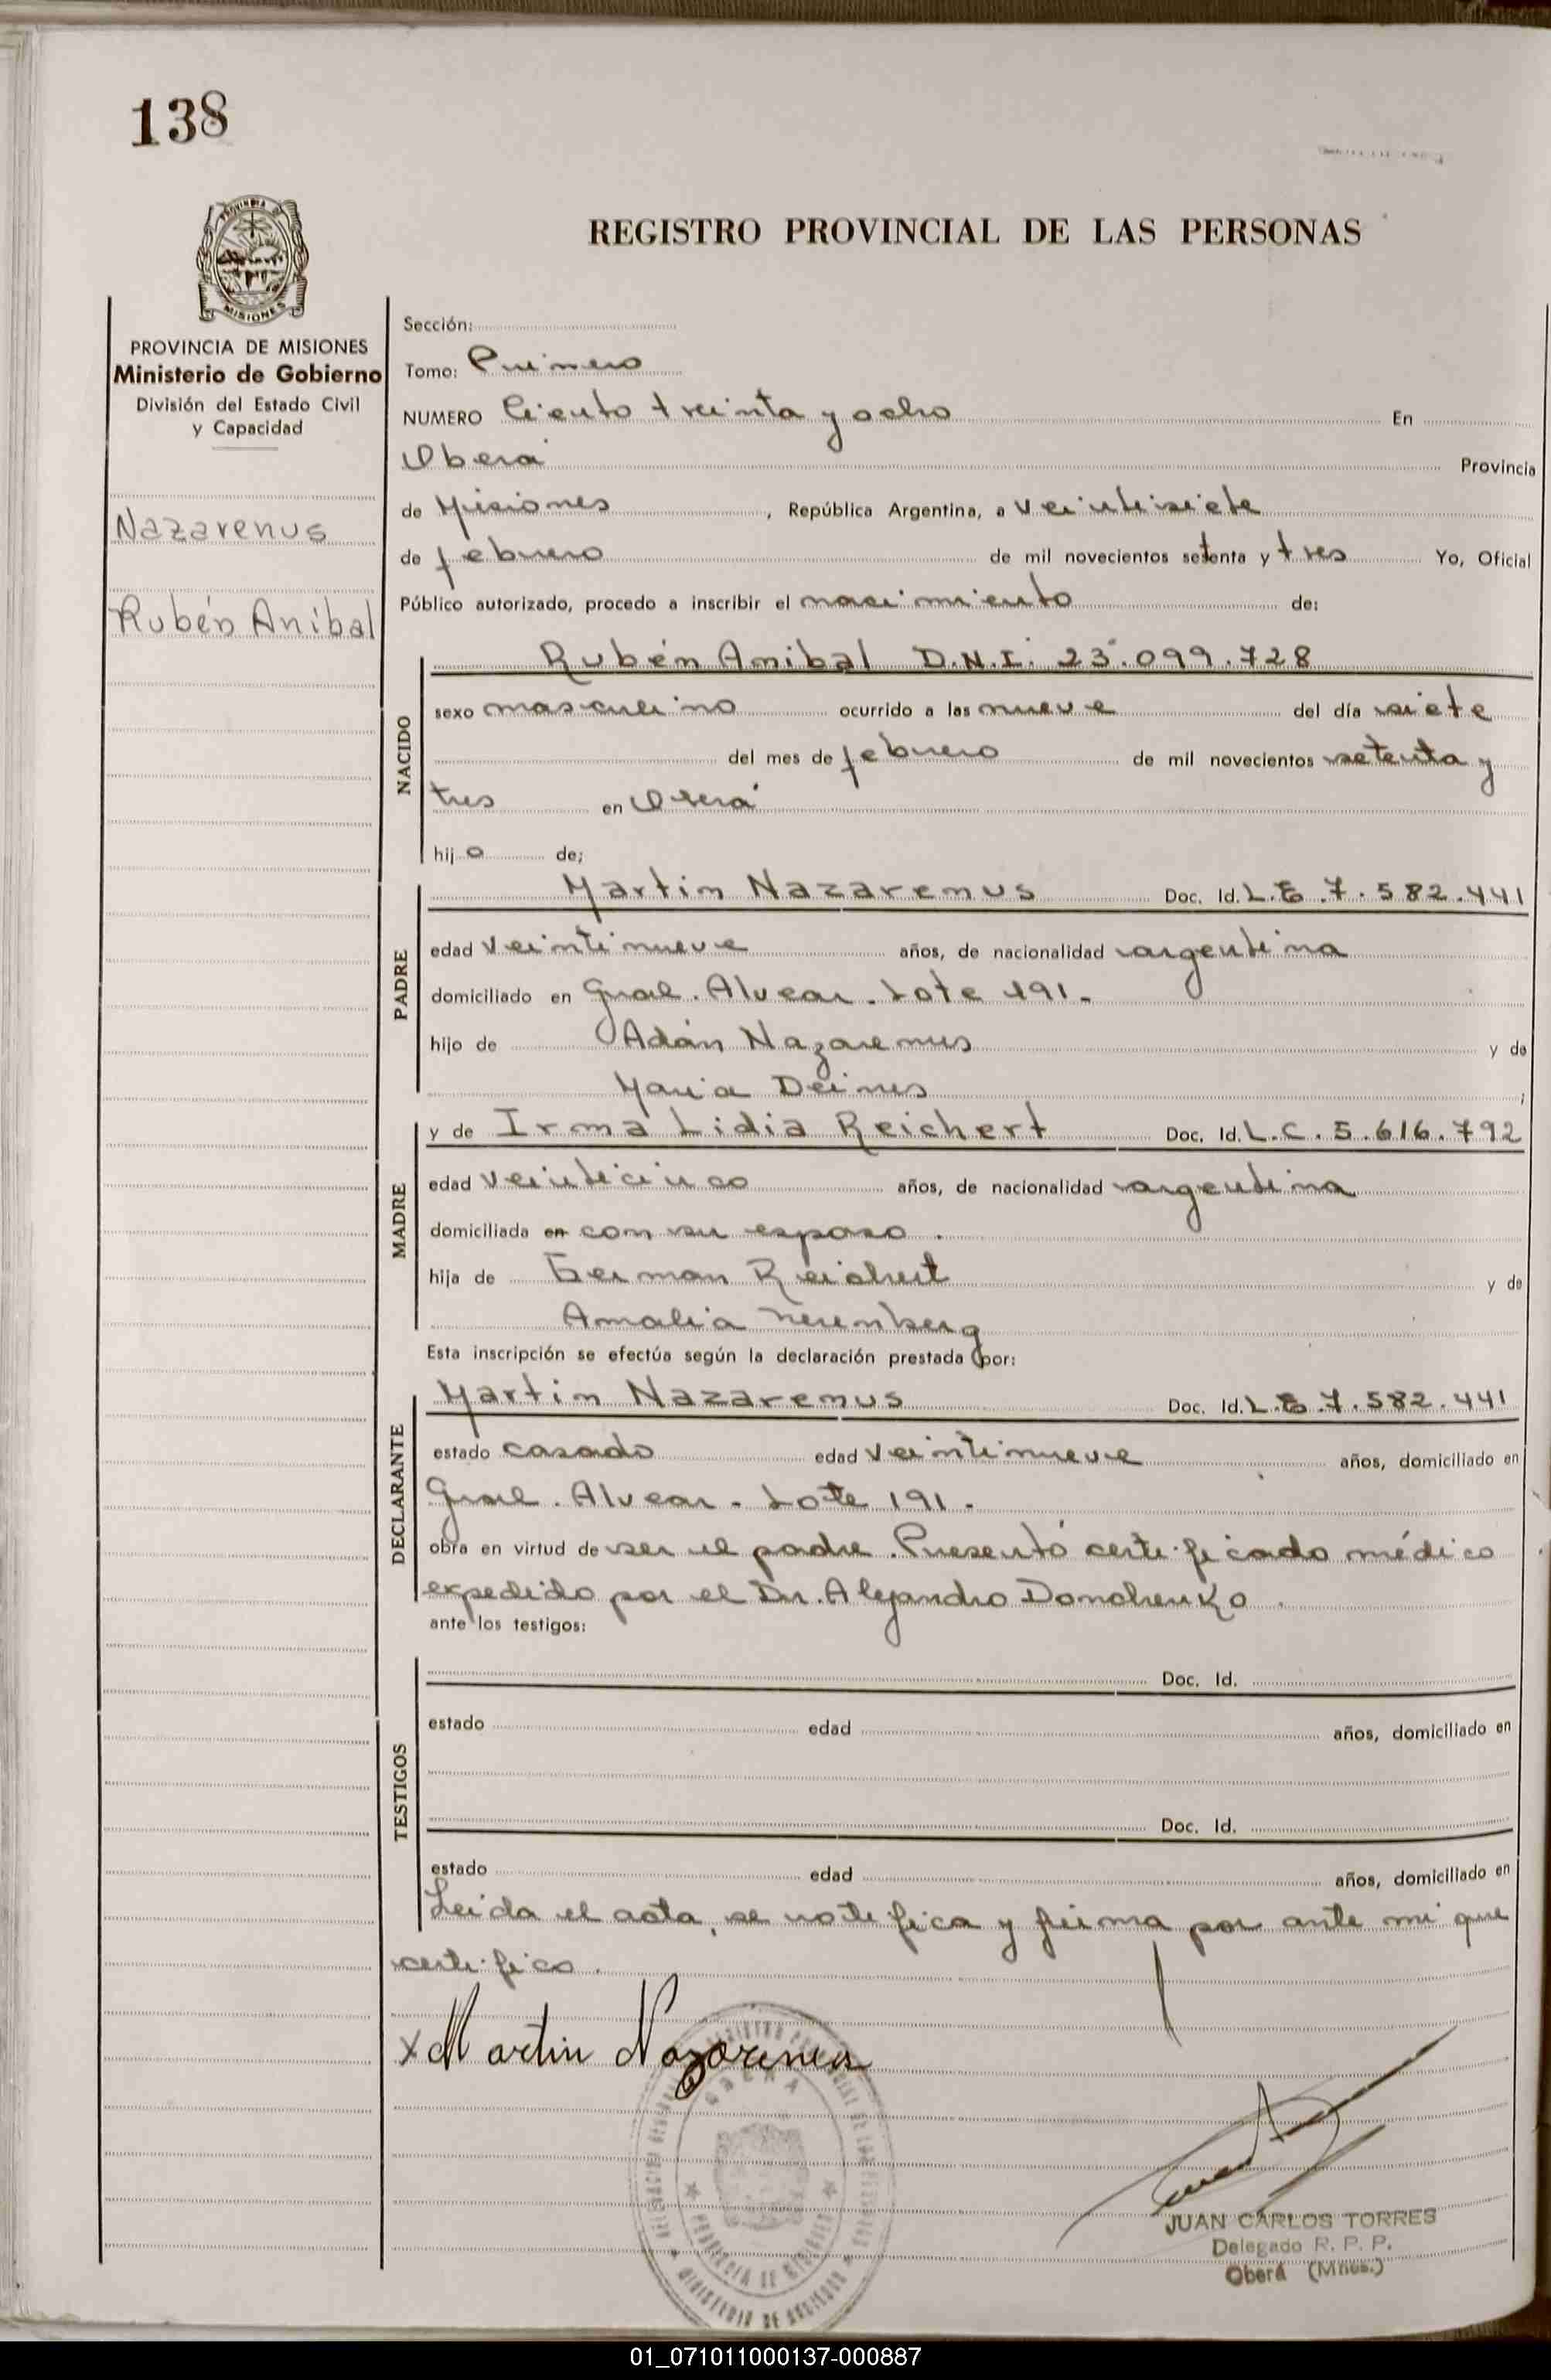 138
REGISTRO PROVINCIAL DE LAS PERSONAS
PROVINCIA DE MISIONES
Ministerio de Gobierno
División del Estado Civil
y Capacidad
Nazarenus
Rubén Aníbal
Sección:
Tomo: Primero
NUMERO Ciento treinta y ocho En
Oberá Provincia
de Misiones, República Argentina, a veintisiete
de febrero de mil novecientos setenta y tres Yo, Oficial
Público autorizado, procedo a inscribir el nacimiento de:
NACIDO
Rubén Anibal D.N.I. 23.099.728
sexo masculino ocurrido a las nueve del día siete
del mes de febrero de mil novecientos setenta y
tres en Oberá
hijo de;
PADRE
Martin Nazarenus Doc. Id. L.E. 7.582.441
edad veintinueve años, de nacionalidad argentina
domiciliado en Gral. Alvear. Lote 191.
hijo de Adán Nazarenus y de
Maria Deines;
MADRE
y de Irma Lidia Reichert Doc. Id. L.C. 5.616.792
edad veinticinco años, de nacionalidad argentina
domiciliada en con su esposo.
hija de German Reichert y de
Amalia
Esta inscripción se efectúa según la declaración prestada por:
DECLARANTE
Martin Nazarenus Doc. Id. L.E. 7.582.441
estado casado edad veintinueve años, domiciliado en
Gral. Alvear. Lote 191.
obra en virtud de ser el padre. Presentó certificado médico
expedido por el Dr. Alejandro Donchenko.
ante los testigos:
TESTIGOS
Doc. Id.
estado edad años, domiciliado en
Doc. Id.
estado edad años, domiciliado en
Leida el acta, se notifica y firma por ante mi que
certifico.
x Martin Nazarenus
OBERA
PROVINCIA DE MISIONES
MINISTERIO DE GOBIERNO
JUAN CARLOS TORRES
Delegado R. P. P.
Oberá (Mnes.)
01_071011000137-000887